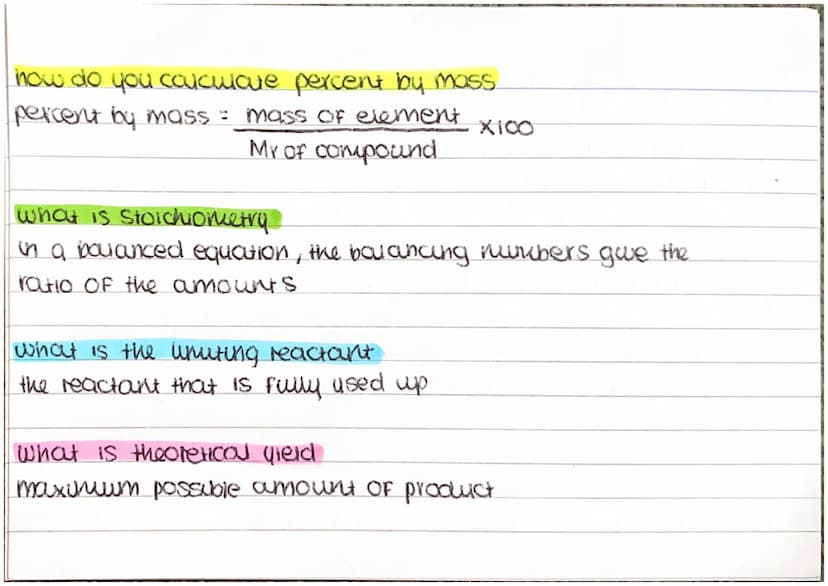 how do you calculate percent by mass
percent by mass = mass of element / Mr of compound ×100
what is stoichiometry
in a balanced equation, the balancing numbers give the
ratio of the amounts
what is the limiting reactant
the reactant that is fully used up
what is theoretical yield
maximum possible amount of product